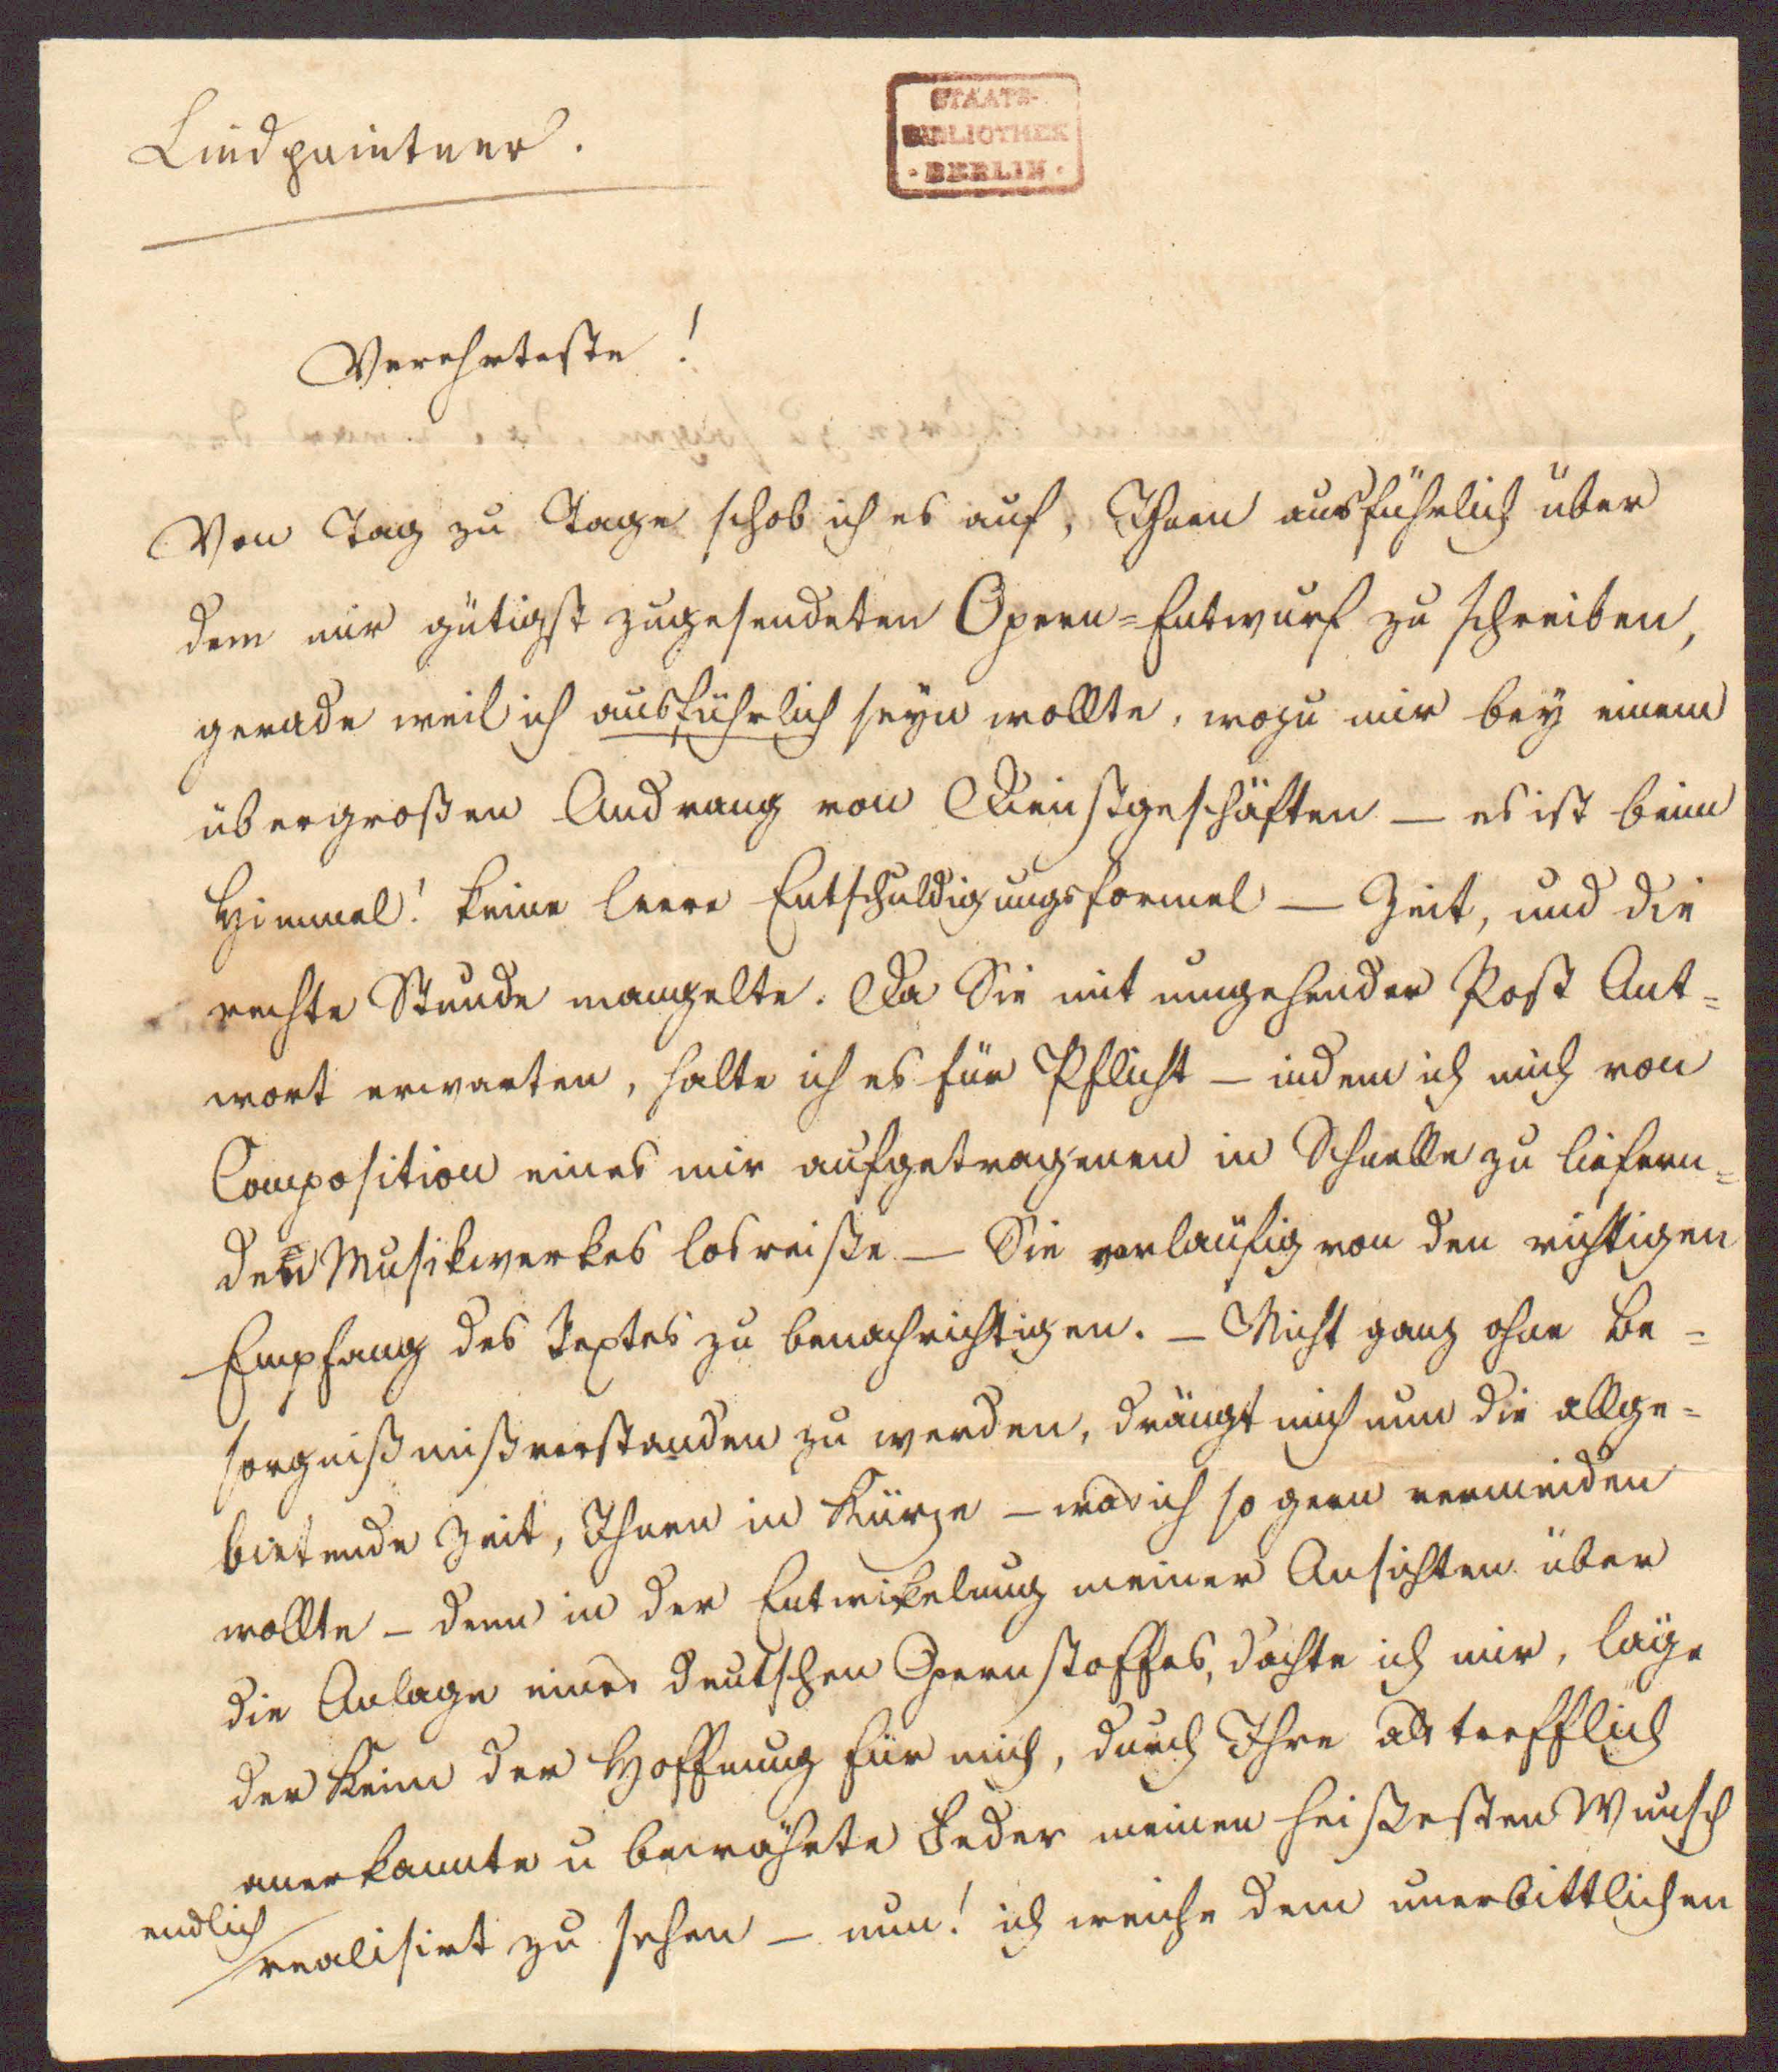 Lindpaintner.
STAATS-
BIBLIOTHEK
· BERLIN ·
Verehrteste!
Von Tag zu Tage schob ich es auf, Ihnen ausführlich über
dem mir gütigst zugesendeten Opern=Entwurf zu schreiben,
gerade weil ich ausführlich seyn wollte, wozu mir bey einem
übergroßen Andrang von Dienstgeschäften — es ist beim
Himmel! keine leere Entschuldigungsformel — Zeit, und die
rechte Stunde mangelte. Da Sie mit umgehender Post Ant=
wort erwarten, halte ich es für Pflicht — indem ich mich von
Composition eines mir aufgetragenen in Schnelle zu liefern=
den Musikwerkes losreiße — Sie vorläufig von den richtigen
Empfang des Textes zu benachrichtigen. — Nicht ganz ohne Be=
sorgniß mißverstanden zu werden, drängt mich nun die allge=
bietende Zeit, Ihnen in Kürze — was ich so gern vermeiden
wollte — denn in der Entwikelung meiner Ansichten über
die Anlage eines deutschen Opernstoffes, dachte ich mir, läge
der Keim der Hoffnung für mich, durch Ihre als trefflich
anerkannte u bewährte Feder meinen heißesten Wunsch
endlich
realisirt zu sehen — nun! ich weiche dem unerbittlichen